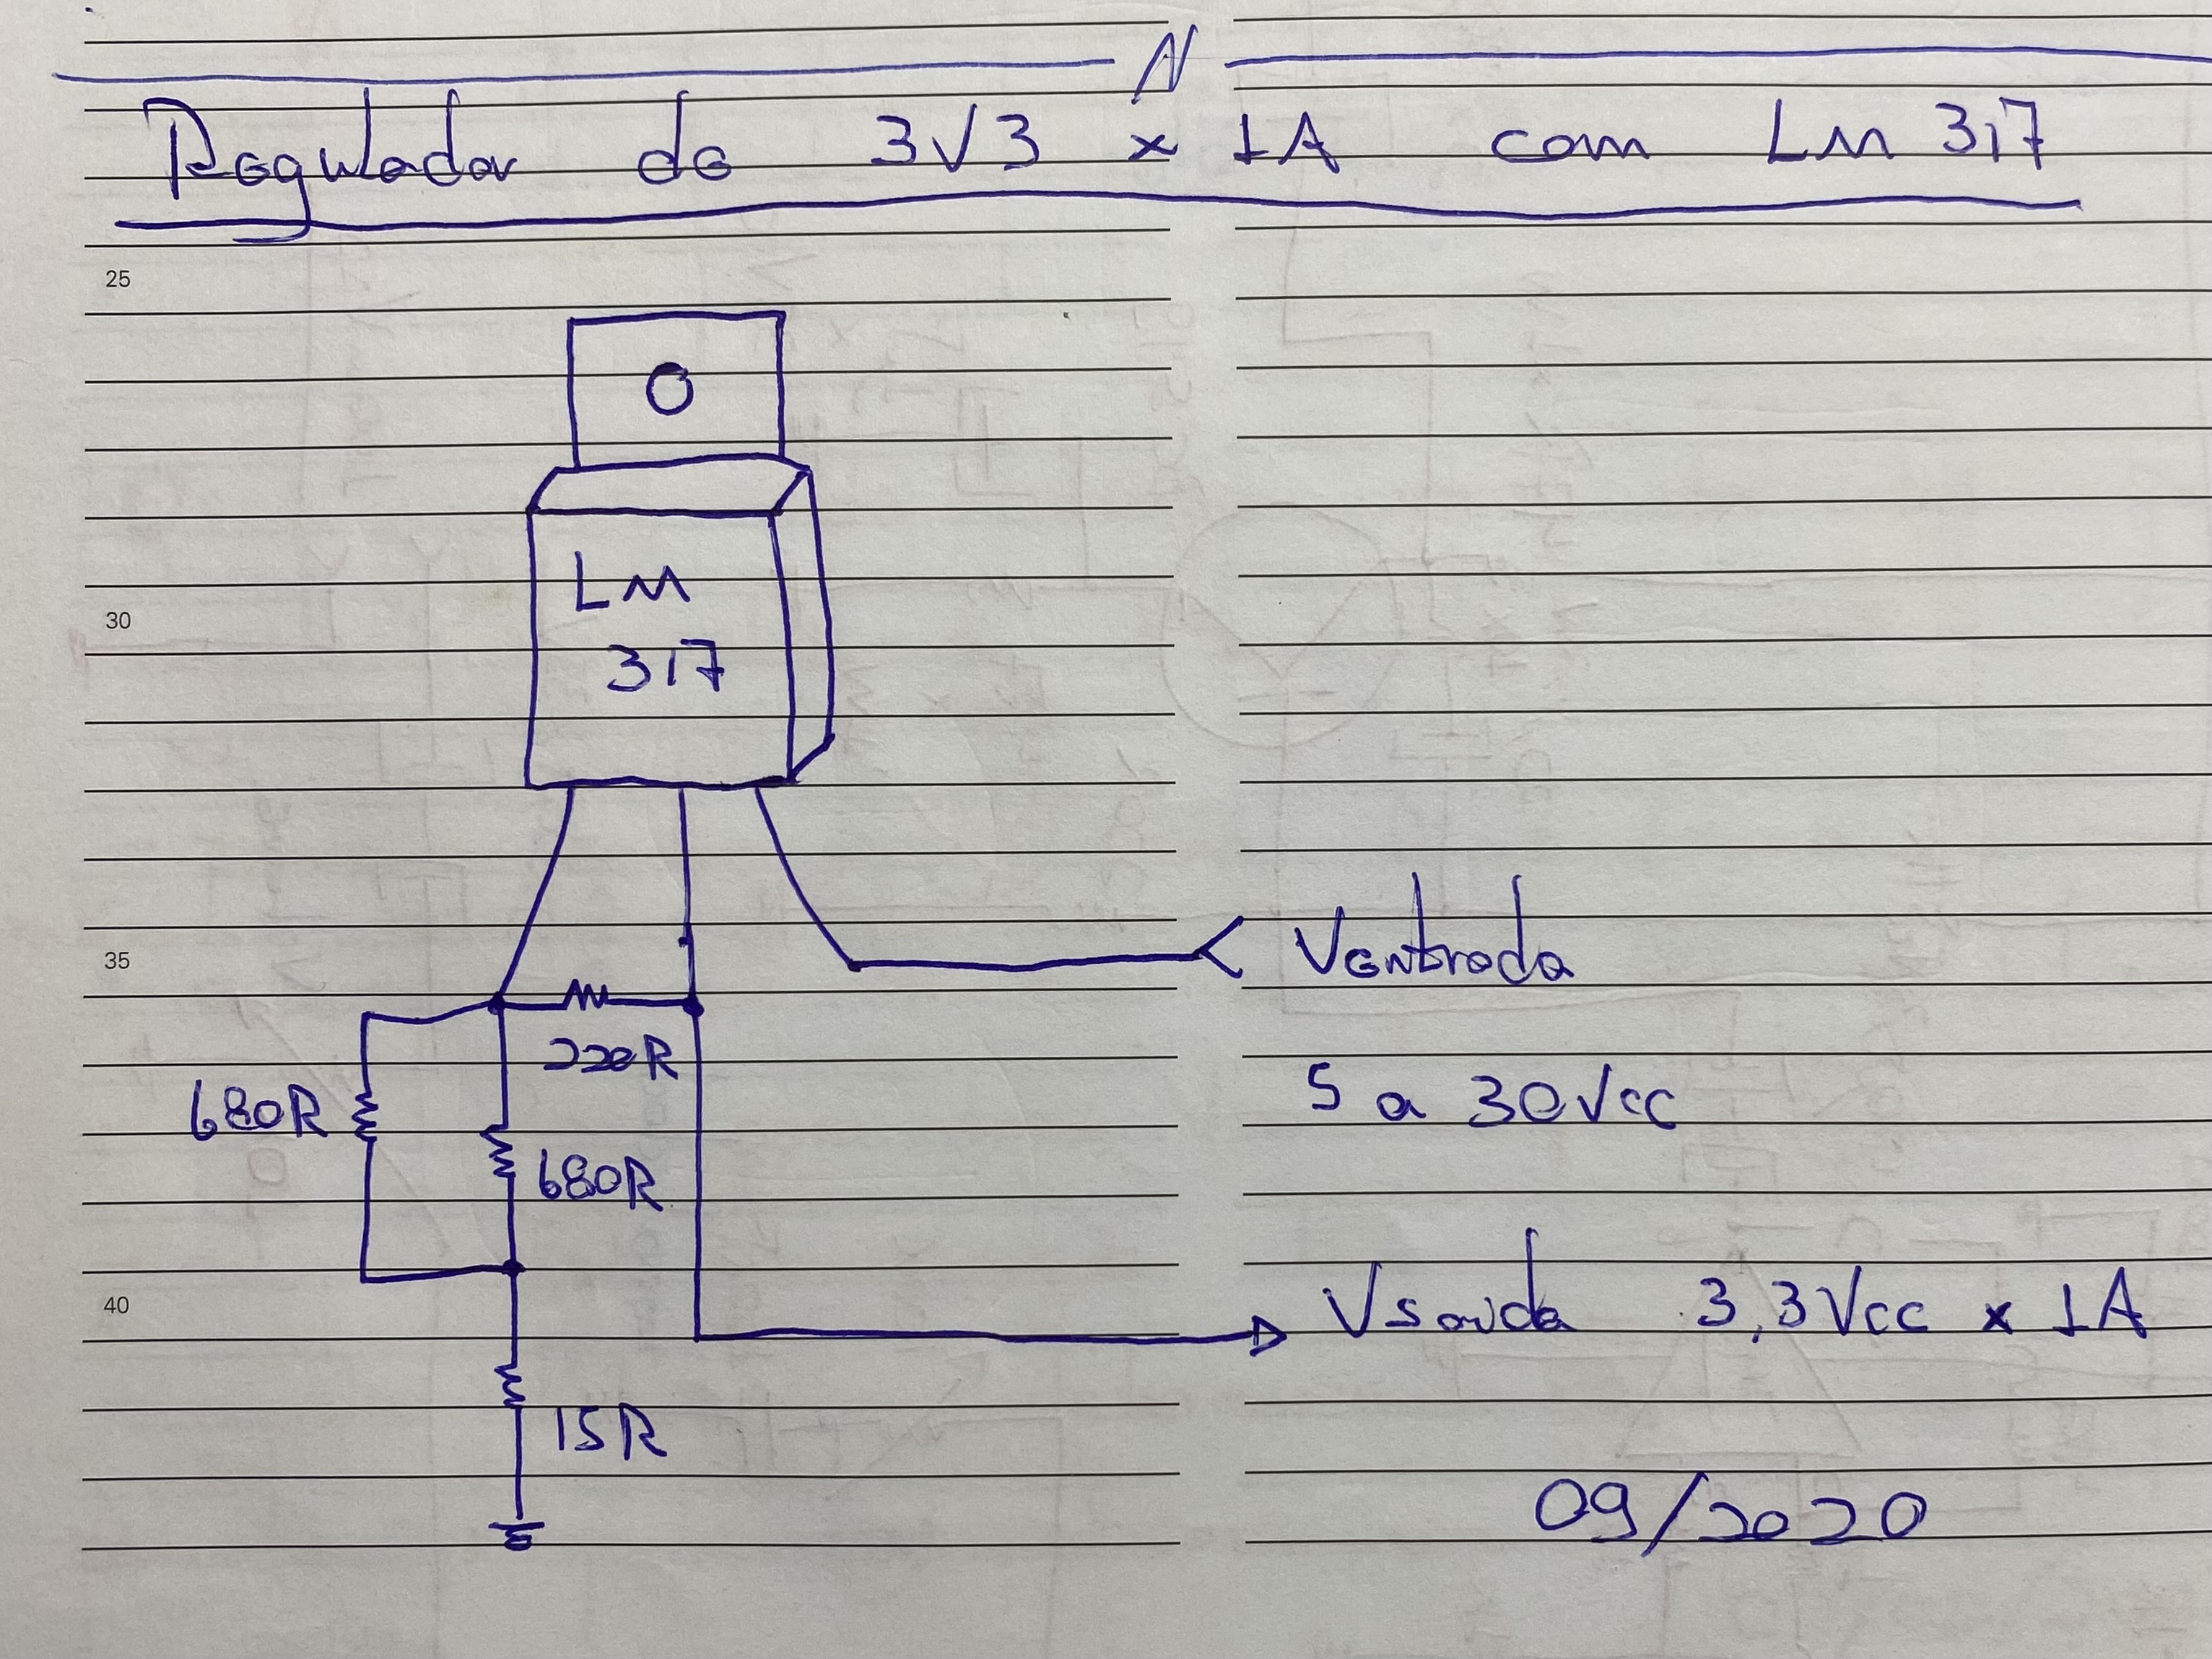 N
Regulador de 3V3 x 1A com LM 317
25
LM
317
30
Ventrada
35
220R
5 a 30Vcc
680R
680R
Vsaida 3,3Vcc x 1A
40
15R
09/2020